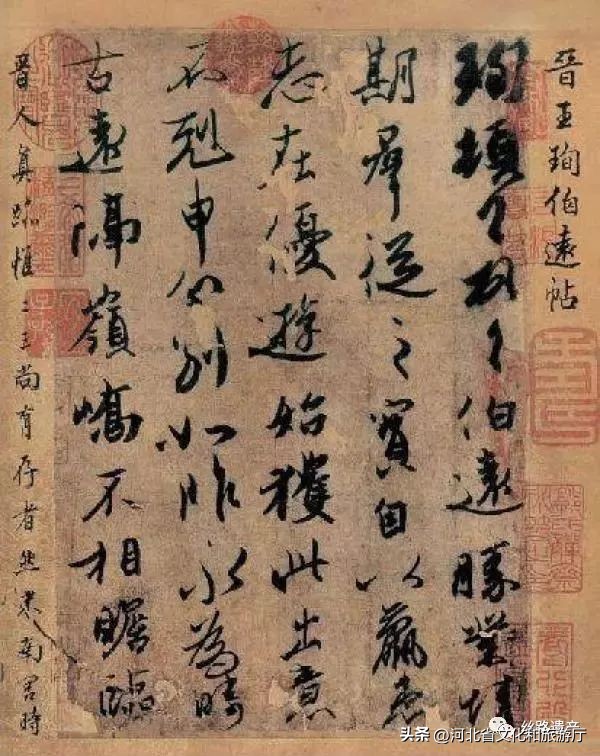 晉王珣伯遠帖
珣頓首頓首伯遠勝業情
期羣從之寶自以羸患
志在優遊始獲此出意
不剋申分別如昨永為疇
古遠隔嶺嶠不相瞻臨
晉人真跡惟二王尚有存者然米南宮時
丝路遗产
头条 @河北省文化和旅游厅